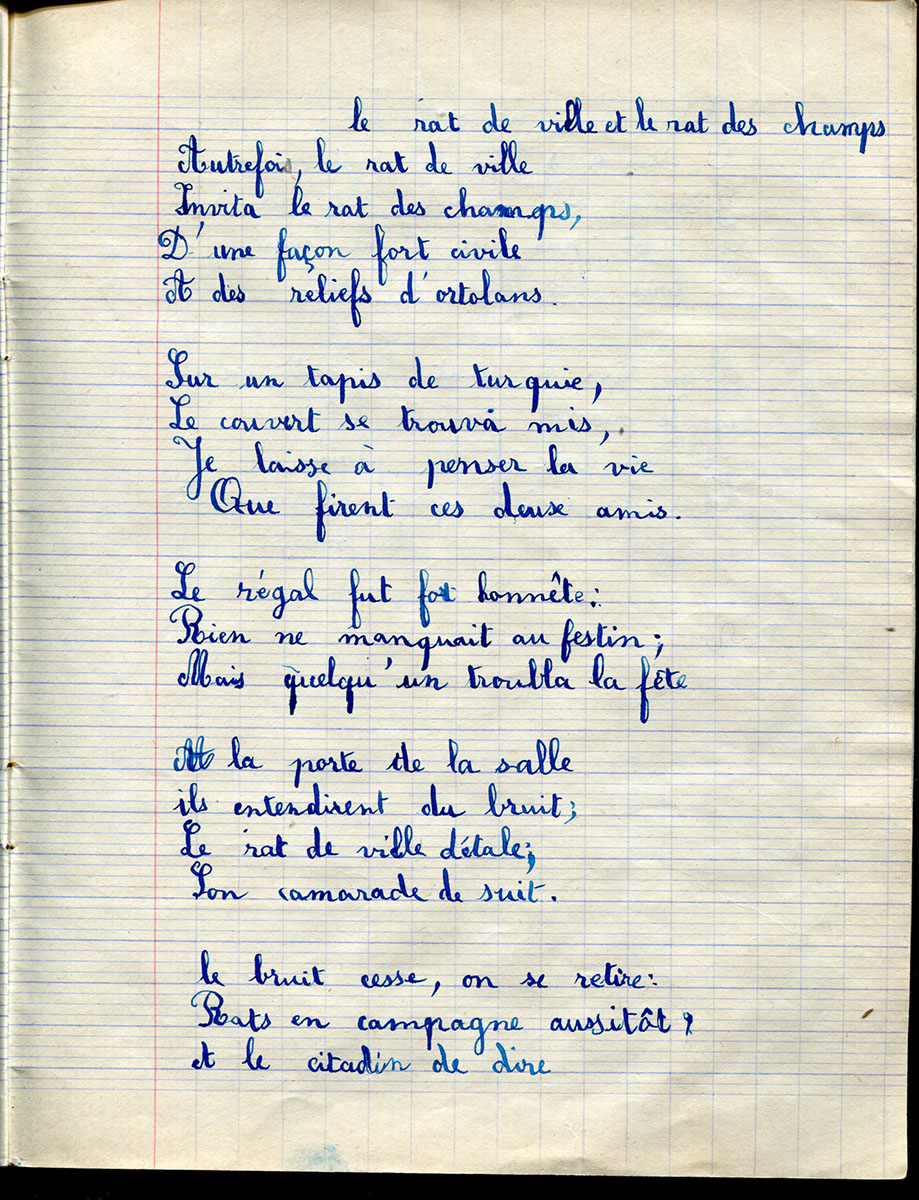 le rat de ville et le rat des champs
Autrefois, le rat de ville
Invita le rat des champs,
D'une façon fort civile
A des reliefs d'ortolans.
Sur un tapis de turquie,
Le couvert se trouva mis,
Je laisse à penser la vie
Que firent ces deux amis.
Le régal fut fort honnête:
Rien ne manquait au festin;
Mais quelqu'un troubla la fête
A la porte de la salle
ils entendirent du bruit;
Le rat de ville détale;
Son camarade de suit.
le bruit cesse, on se retire:
Rats en campagne aussitôt;
et le citadin de dire